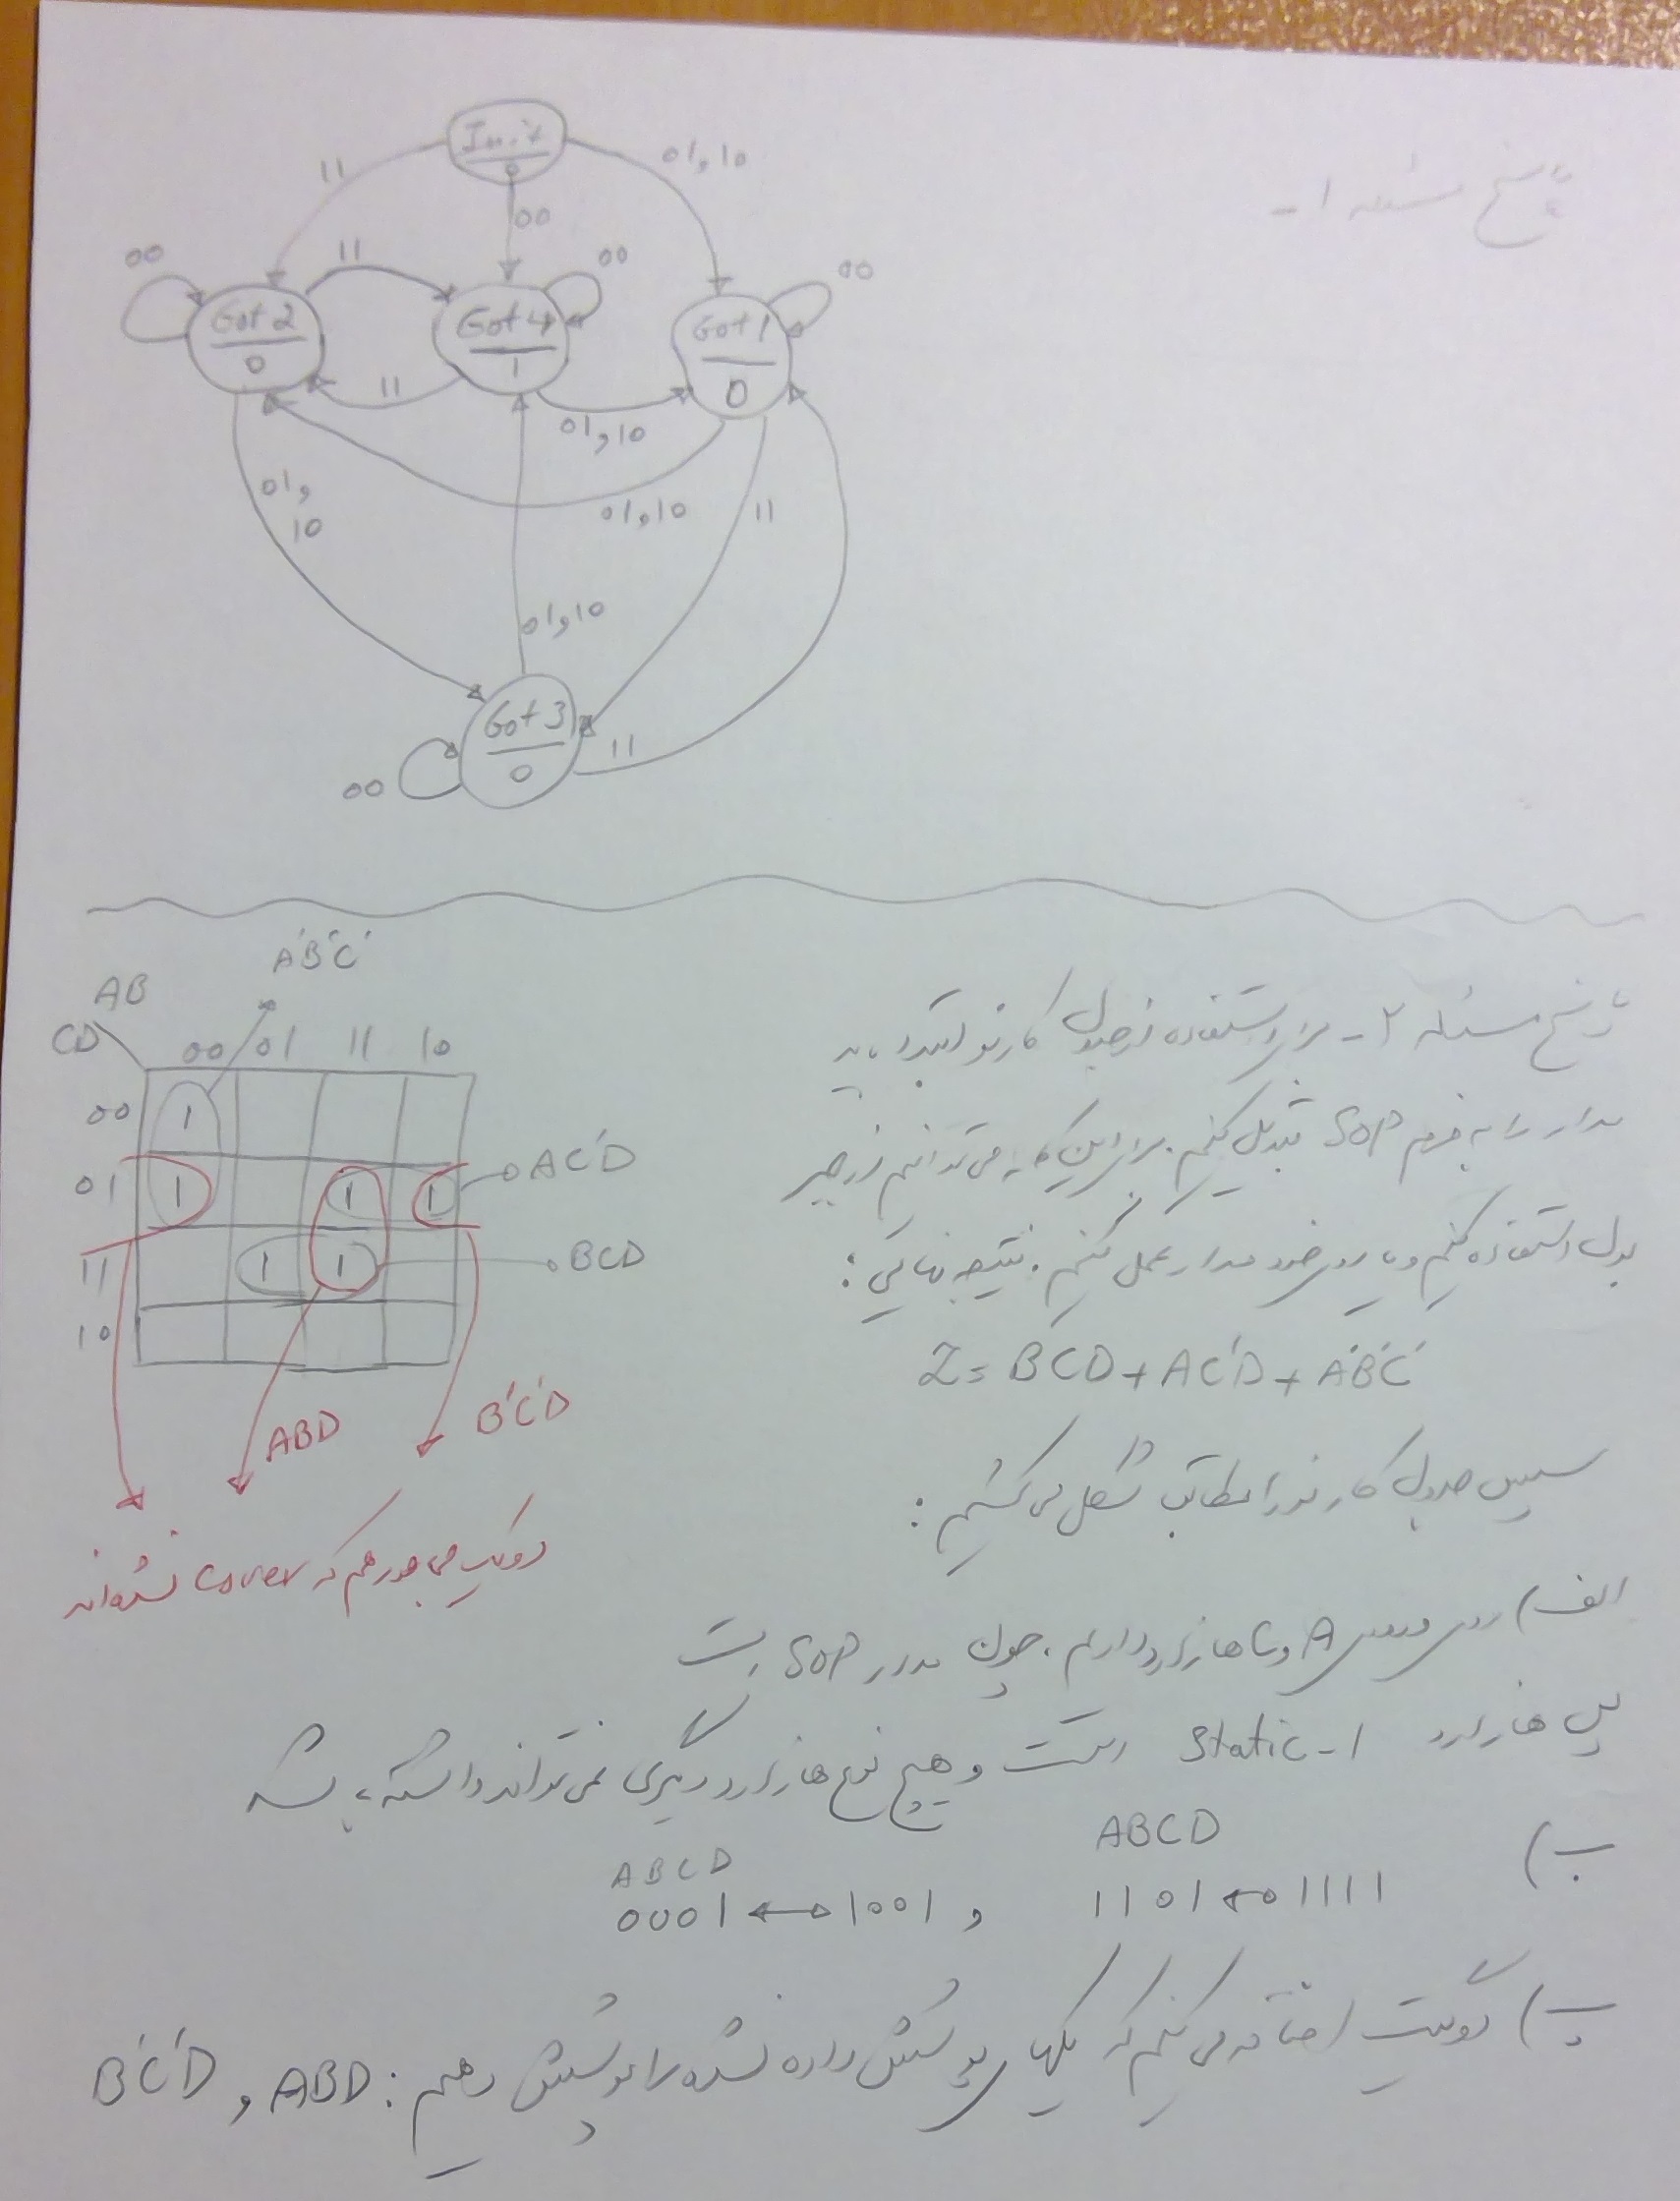 پاسخ مسئله ۱-
Init
0
11
00
01,10
00
11
00
00
Got 2
0
Got 4
1
Got 1
0
11
01,10
01,
10
01,10
11
01,10
Got 3
0
11
00
پاسخ مسئله ۲- برای استفاده از جدول کارنو ابتدا باید
مدار را به فرم SOP تبدیل کنیم. برای این کار می توانیم از جبر
بول استفاده کنیم و یا روی خود مدار عمل کنیم. نتیجه نهایی:
Z = BCD + AC'D + A'B'C'
سپس جدول کارنو را مطابق شکل می کشیم:
A'B'C'
AB
CD
00 01 11 10
00 1
01 1 1 1
11 1 1
10
AC'D
BCD
ABD
B'C'D
دو گیت می خواهیم که cover نشده اند
الف) روی ورودی A و C هازارد داریم. چون مدار SOP است
پس هازارد static-1 است و هیچ نوع هازارد دیگری نمی تواند داشته باشد
ب)
ABCD
1101 ↔ 1111
,
ABCD
0001 ↔ 1001
پ) دو گیت اضافه می کنیم که یکهای پوشش داده نشده را پوشش دهیم: ABD , B'C'D